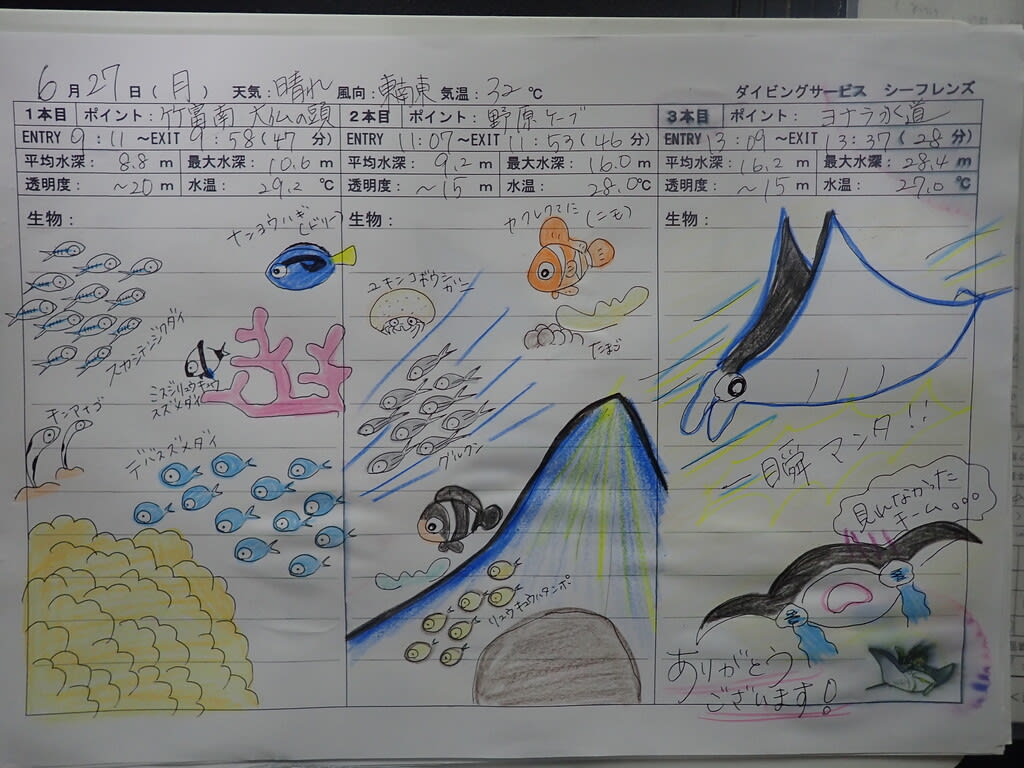 6月27日(月) 天気:晴れ 風向:東南東 気温:32℃ ダイビングサービス シーフレンズ
1本目 ポイント:竹富南 大仏の頭
ENTRY 9:11~EXIT 9:58(47分)
平均水深: 8.8 m 最大水深: 10.6 m
透明度: ~20 m 水温: 29.2 ℃
生物:
ナンヨウハギ
(ドリー)
スカシテンジクダイ
ミスジリュウキュウ
スズメダイ
チンアナゴ
デバスズメダイ
2本目 ポイント:野原ケーブ
ENTRY 11:07~EXIT 11:53(46分)
平均水深: 9.2 m 最大水深: 16.0 m
透明度: ~15 m 水温: 28.0℃
生物:
カクレクマノミ(ニモ)
ユキンコボウシ
ガニ
たまご
グルクン
リュウキュウハタンポ
3本目 ポイント:ヨナラ水道
ENTRY 13:09~EXIT 13:37(28分)
平均水深: 16.2 m 最大水深: 28.4 m
透明度: ~15 m 水温: 27.0 ℃
生物:
一瞬マンタ!!
見れなかった
チーム...
ありがとう
ございます!